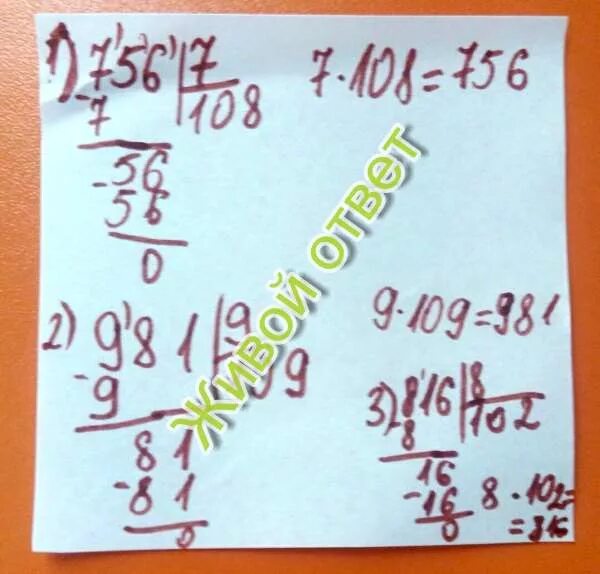 1) 756 | 7
-7 108
-56
56
0
7·108=756
2) 981 | 9
-9 9
81
-81
0
9·109=981
3) 816 | 8
-8 102
16
-16
0
8·102=
=816
живой ответ